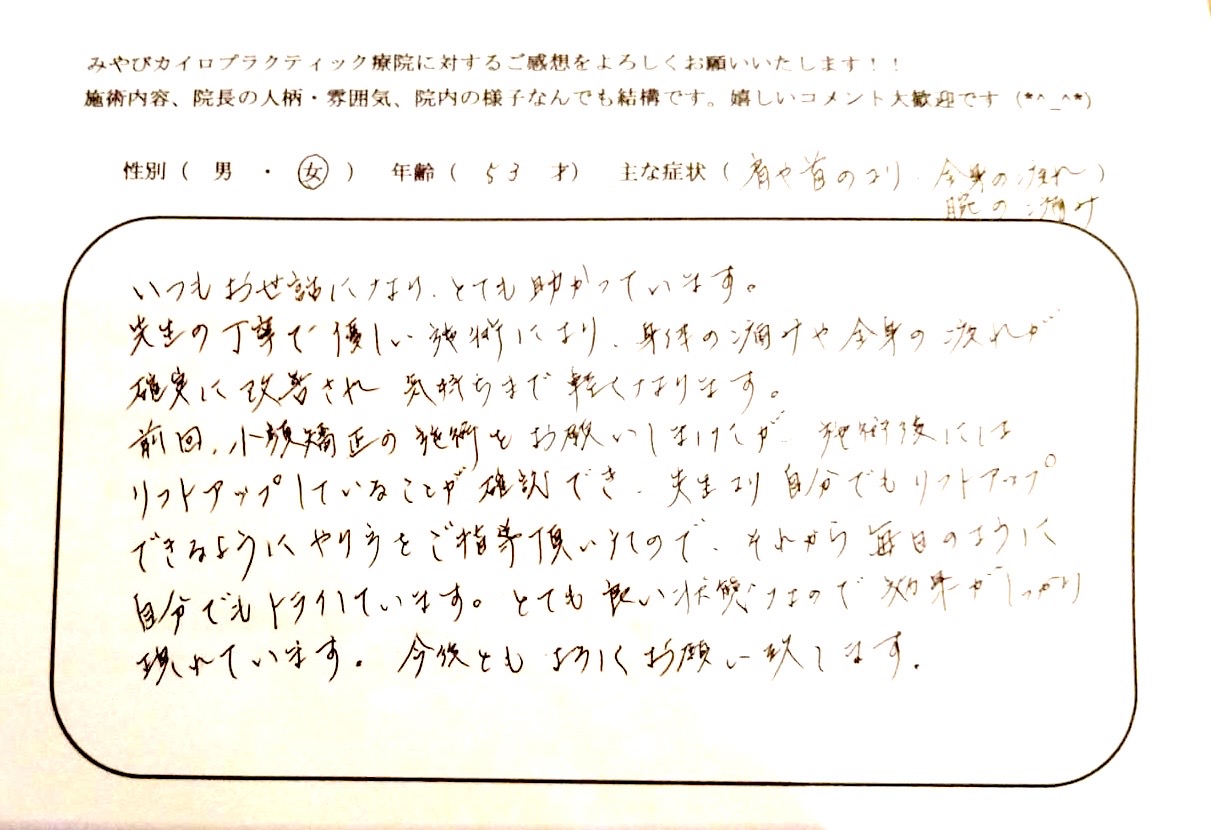 みやびカイロプラクティック療院に対するご感想をよろしくお願いいたします！！
施術内容、院長の人柄・雰囲気、院内の様子なんでも結構です。嬉しいコメント大歓迎です (*^_^*)
性別（ 男 ・ 女 ） 年齢（ 53 才） 主な症状（ 肩や首のコリ、全身の疲れ ）
眼の痛み
いつもお世話になり、とても助かっています。
先生の丁寧で優しい施術により、身体の痛みや全身の疲れが
確実に改善され 気持ちまで軽くなります。
前回、小顔矯正の施術をお願いしましたが、施術後には
リフトアップしていることが確認でき、先生より自分でもリフトアップ
できるようにやり方をご指導頂いたので、それから毎日のように
自分でもトライしています。とても良い状態なので効果がしっかり
現れています。今後ともよろしくお願い致します。